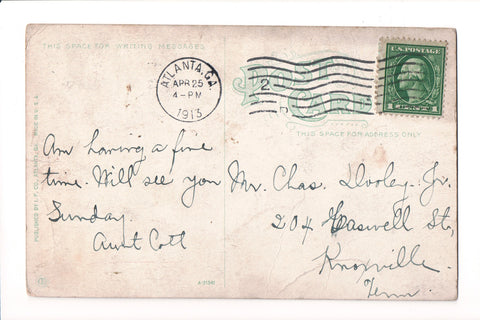 THIS SPACE FOR WRITING MESSAGES
ATLANTA, GA.
APR 25
4-PM
1913
2
POST
CARD
U.S. POSTAGE
1 CENT 1
THIS SPACE FOR ADDRESS ONLY
Am having a fine
time. Will see you
Sunday.
Aunt Cott
Mr. Chas. Dooley. Jr.
204 Caswell St,
Knoxville.
Tenn.
PUBLISHED BY I. F. CO., ATLANTA, GA. MADE IN U.S.A.